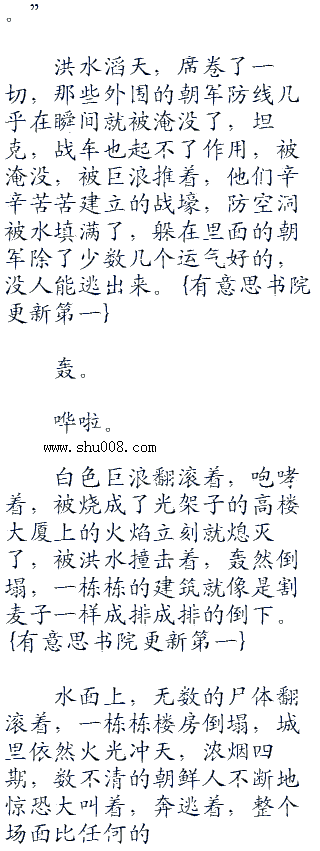 。”
洪水滔天，席卷了一
切，那些外围的朝军防线几
乎在瞬间就被淹没了，坦
克，战车也起不了作用，被
淹没，被巨浪推着，他们辛
辛苦苦建立的战壕，防空洞
被水填满了，躲在里面的朝
军除了少数几个运气好的，
没人能逃出来。{有意思书院
更新第一}
轰。
哗啦。
www.shu008.com
白色巨浪翻滚着，咆哮
着，被烧成了光架子的高楼
大厦上的火焰立刻就熄灭
了，被洪水撞击着，轰然倒
塌，一栋栋的建筑就像是割
麦子一样成排成排的倒下。
{有意思书院更新第一}
水面上，无数的尸体翻
滚着，一栋栋楼房倒塌，城
里依然火光冲天，浓烟四
期，数不清的朝鲜人不断地
惊恐大叫着，奔逃着，整个
场面比任何的